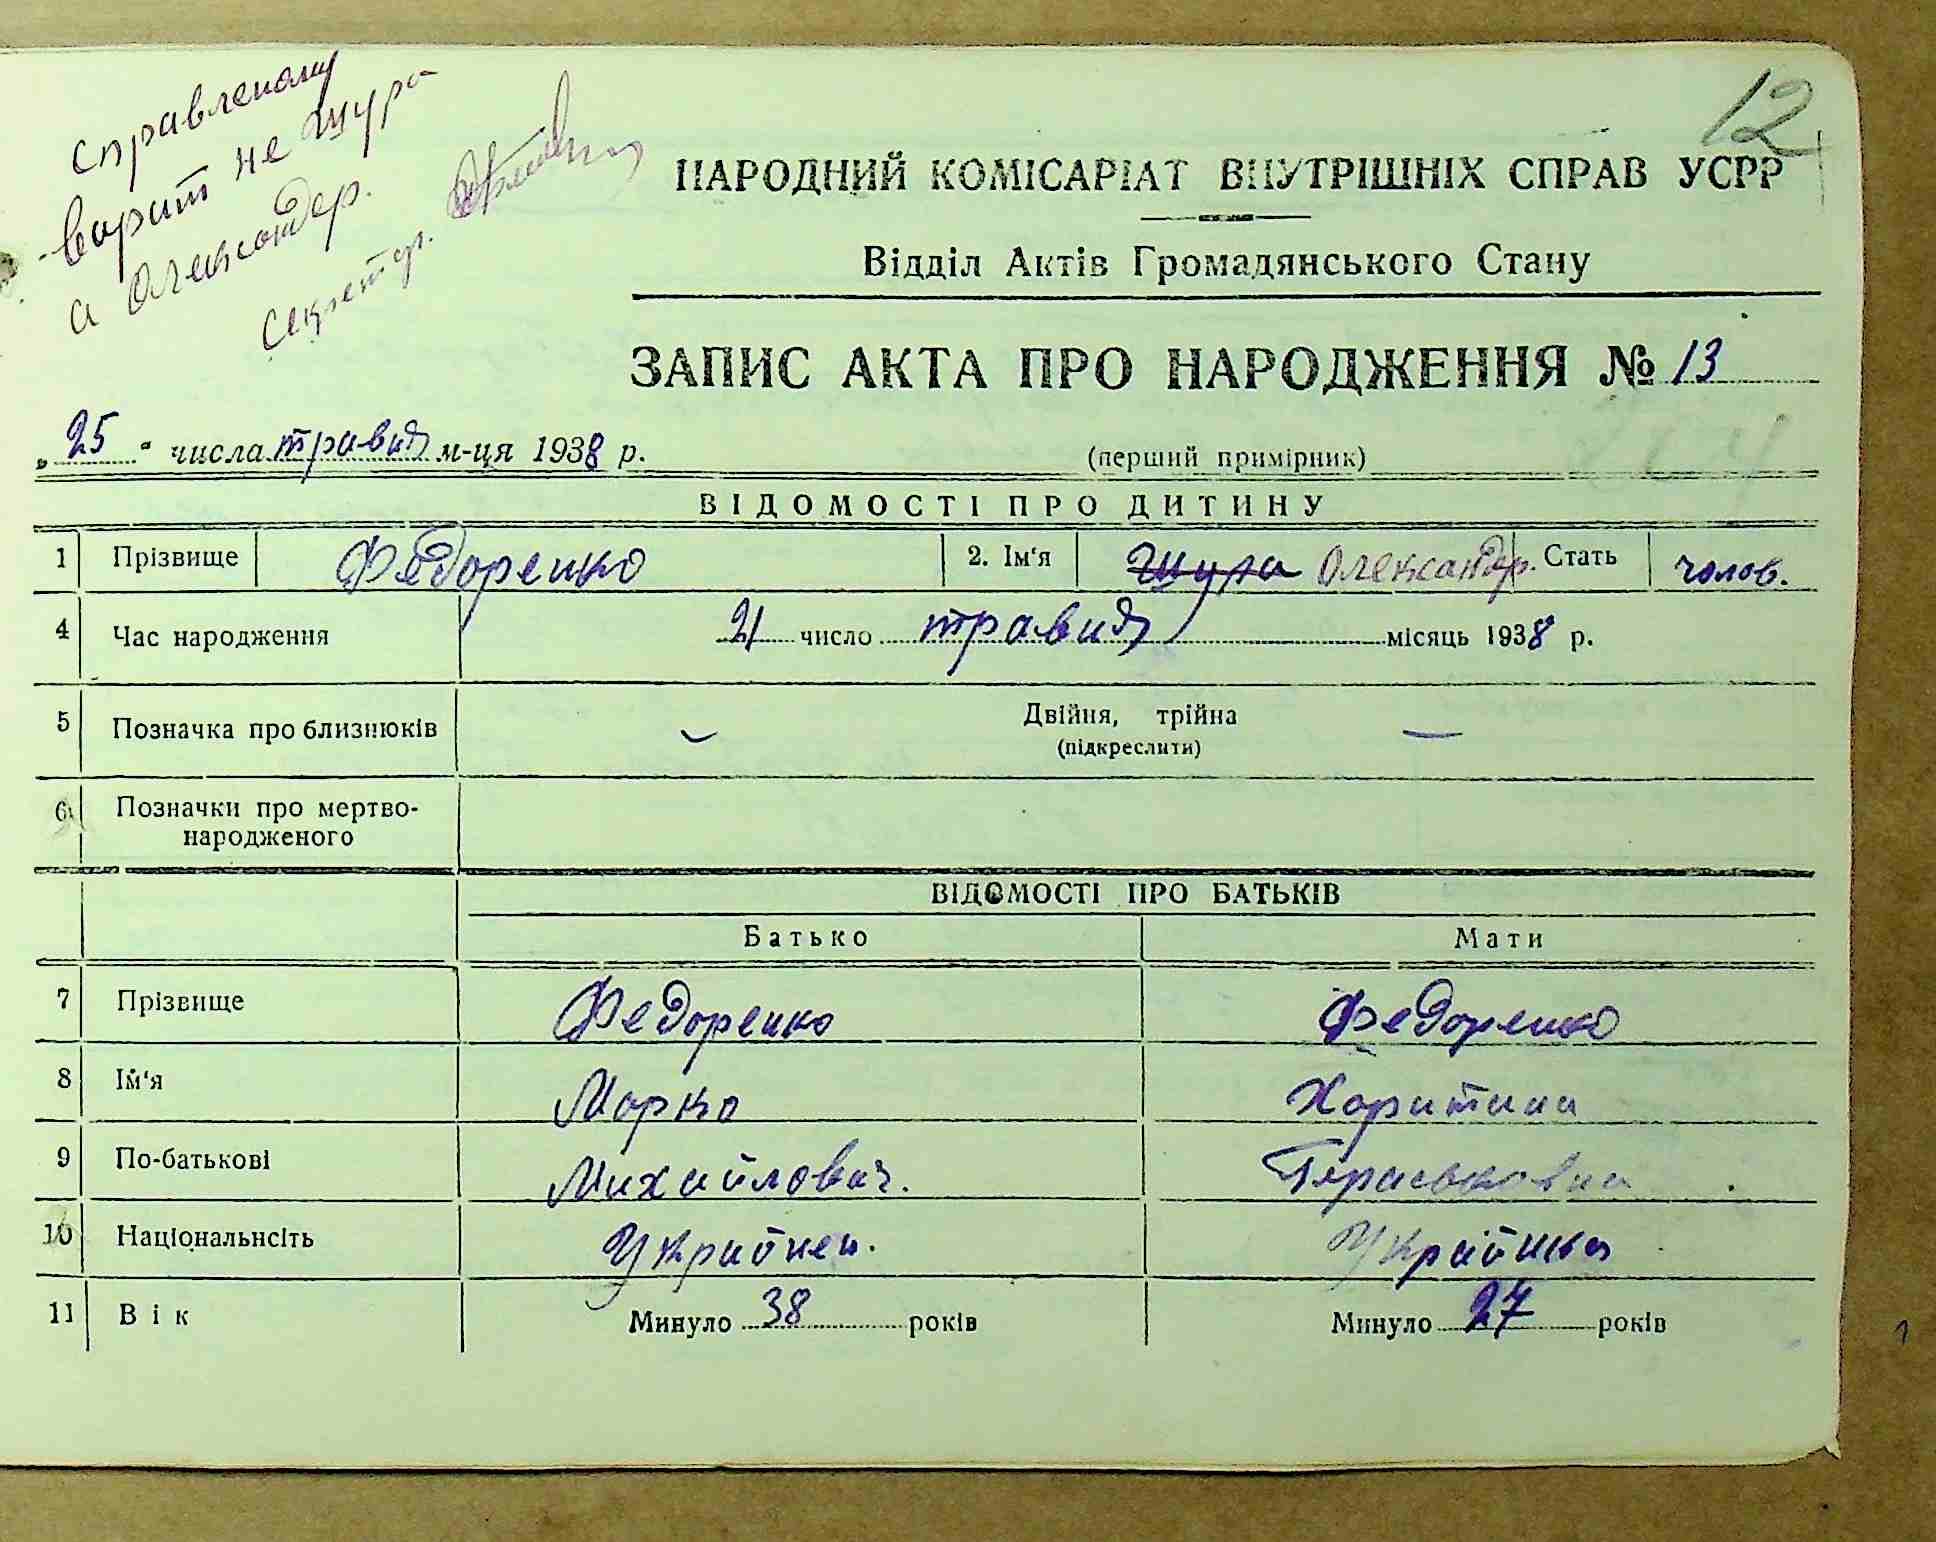 справленому
варит не Шура
а Олександр.
секретар.
12
НАРОДНИЙ КОМІСАРІАТ ВНУТРІШНІХ СПРАВ УСРР
Відділ Актів Громадянського Стану
ЗАПИС АКТА ПРО НАРОДЖЕННЯ № 13
„25“ числа травня м-ця 1938 р. (перший примірник)
ВІДОМОСТІ ПРО ДИТИНУ
1 Прізвище Федоренко 2. Ім'я Шура Олександр. Стать чолов.
4 Час народження 21 число травня місяць 1938 р.
5 Позначка про близнюків – Двійня, трійна –
(підкреслити)
6 Позначки про мертво-
народженого
ВІДОМОСТІ ПРО БАТЬКІВ
Батько Мати
7 Прізвище Федоренко Федоренко
8 Ім'я Марко Харитина
9 По-батькові Михайлович. Гераськовна
10 Національнсіть Українец. Українка
11 Вік Минуло 38 років Минуло 27 років